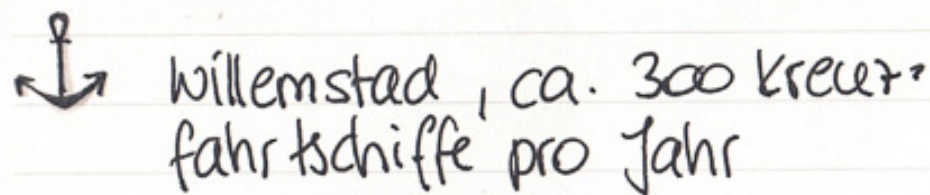 Willemstad, ca. 300 Kreuz-
fahrtschiffe pro Jahr